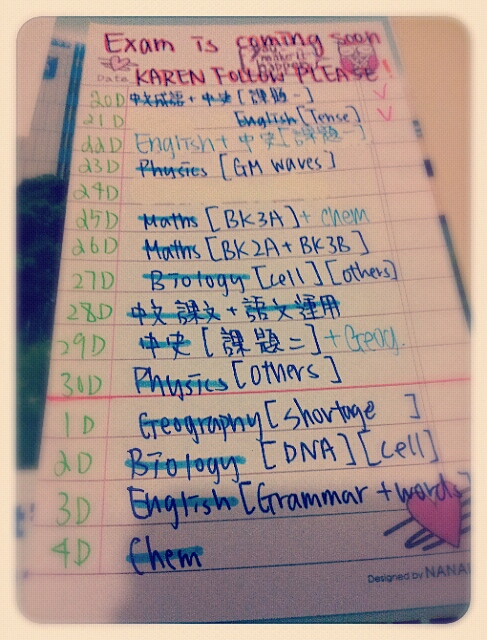 Exam is coming soon
Data KAREN FOLLOW PLEASE!
20D 中文成語 + 中史 [課題一]
21D English [Tense]
22D English + 中史 [課題一]
23D Physics [GM waves]
24D
25D Maths [BK3A] + Chem
26D Maths [BK2A + BK3B]
27D Biology [cell] [others]
28D 中文 課文 + 語文運用
29D 中史 [課題二] + Geog.
30D Physics [others]
1D Geography [shortage ]
2D Biology [DNA] [cell]
3D English [Grammar + words]
4D Chem
Designed by NANA